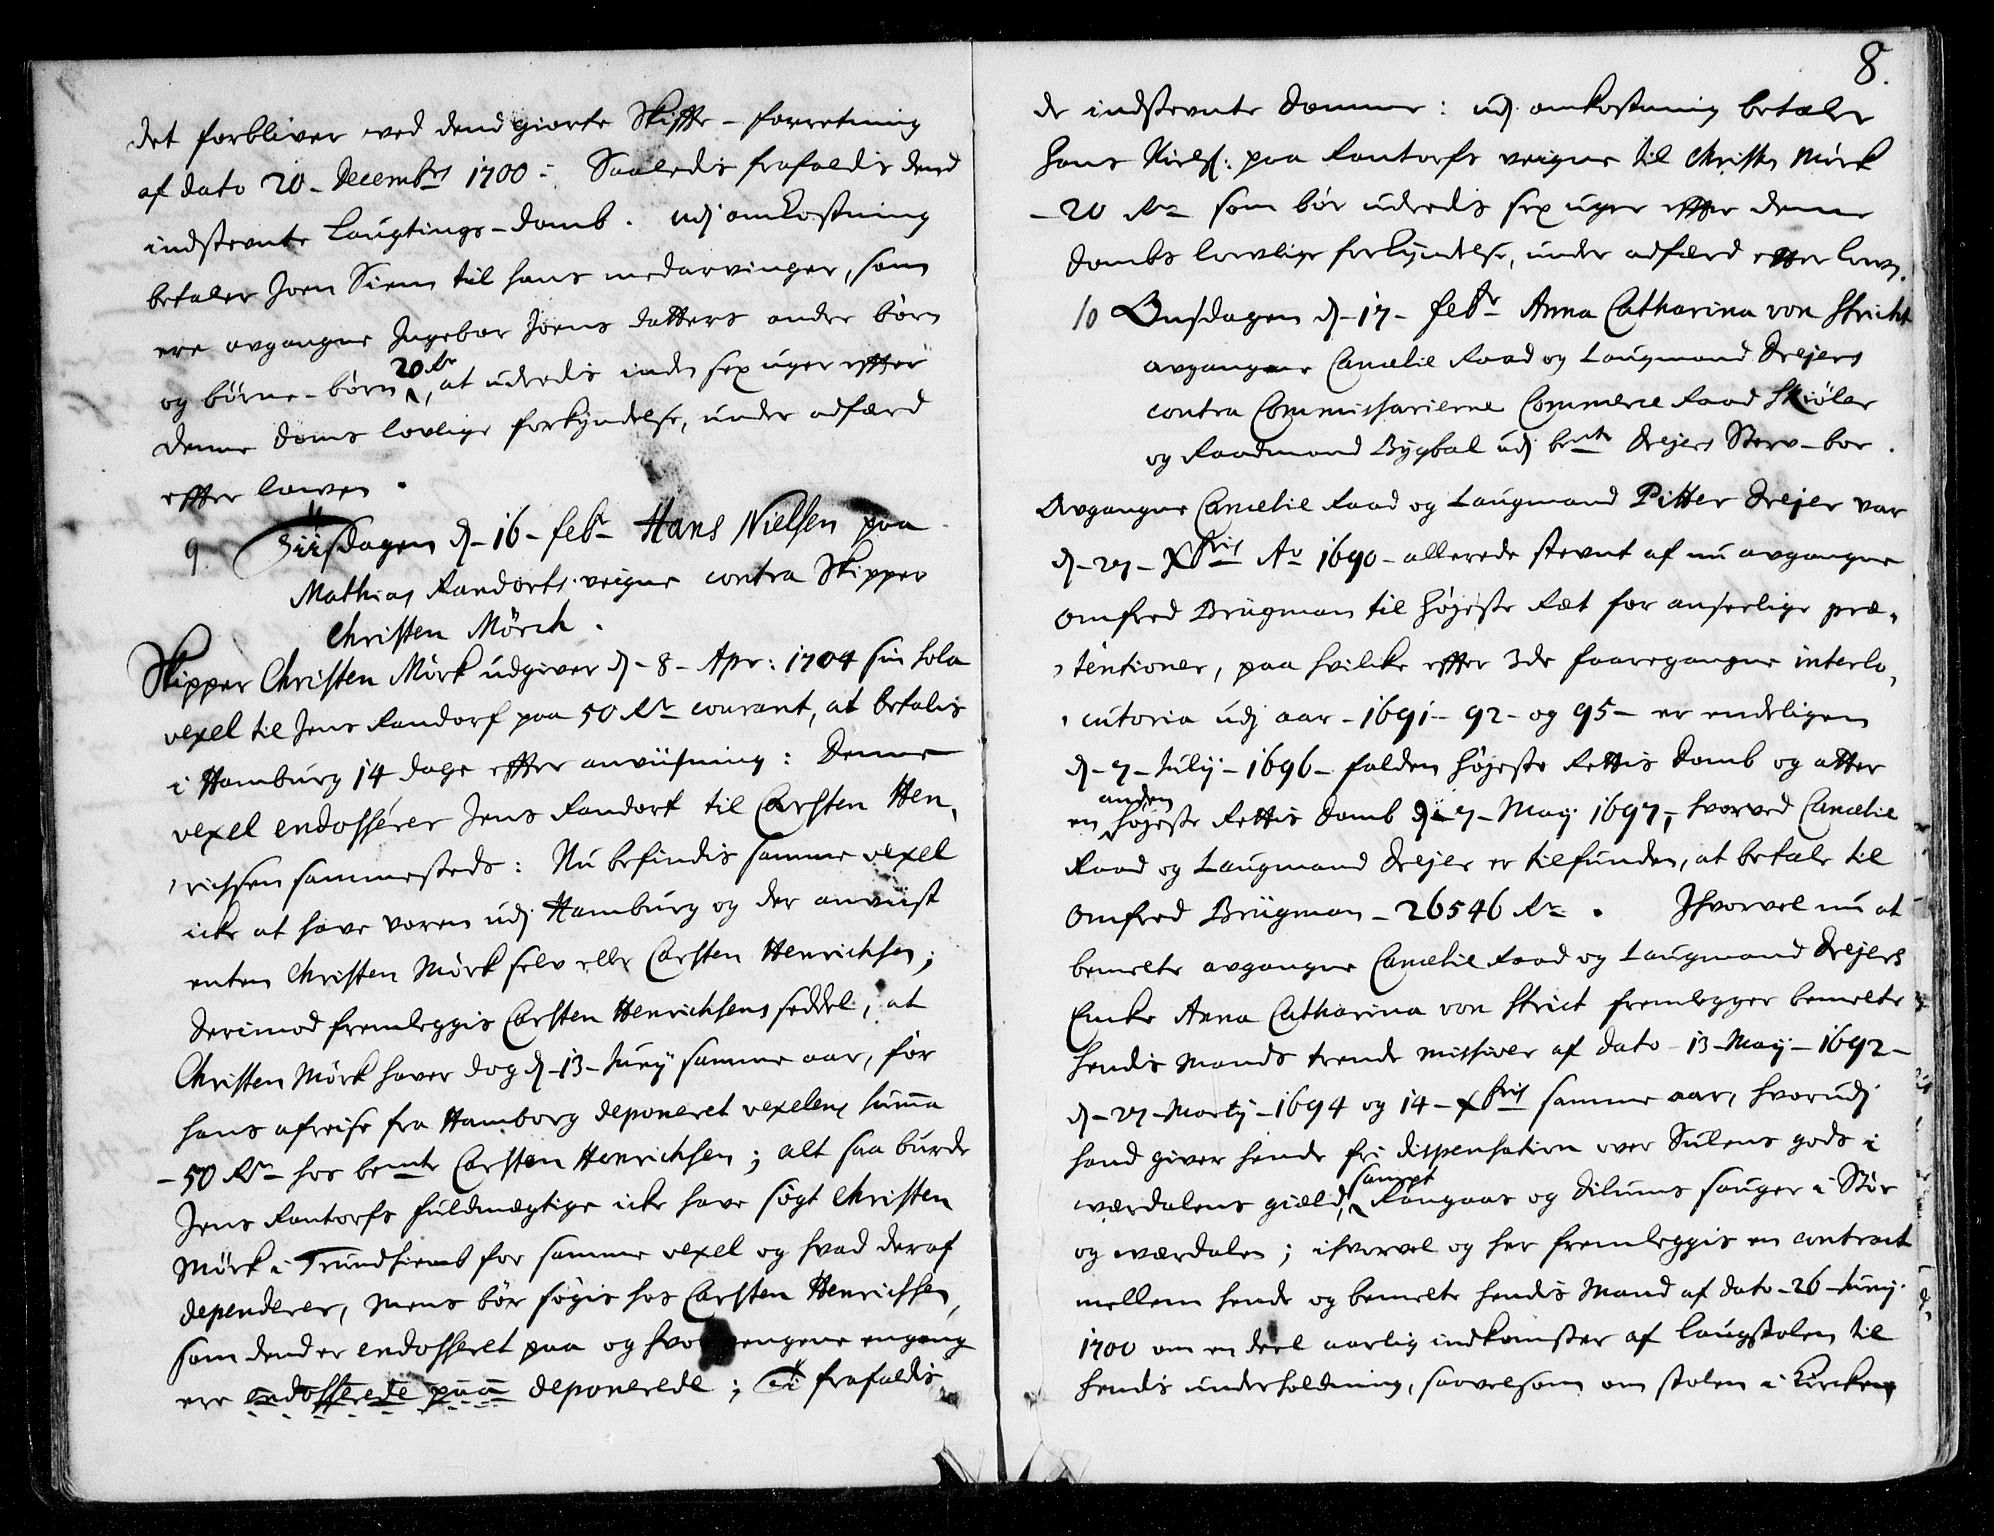 det forbliver ved dend giorte Skifte-forretning
af dato 20 Decembris 1700: Saaledis frafaldis dend
indstevnte Laugtings-domb. udj omkostning
betaler Joen Siem til hans medarvinger, som
ere afgangne Ingebor Joens datters andre børn
og børne-børn 20 Rdr, at uderedis inden sex uger effter
denne doms lovlige forkyndelse, under adfærd
effter lowen.
9. Tiisdagen d. 16 febr. Hans Nielsen paa
Mathias Randorfs veigne contra Skipper
Christen Mörch.
Skipper Christen Mörk udgiver d. 8 Apr: 1704 sin sola
vexel til Jens Randorf paa 50 Rdr courant, at betalis
i Hamburg 14 dage effter anviisning: Denne
vexel endosserer Jens Randorf til Carsten Hen,
richsen sammesteds: Nu befindis samme vexel
icke at have voren udj Hamburg og der anviist
enten Christen Mörk selv eller Carsten Henrichsen;
Derimod fremleggis Carsten Henrichsens seddel, at
Christen Mörk haver dog d. 13 Junij samme aar, før
hans afreise fra Hamborg deponeret vexelens summa
50 Rdr hos bemte Carsten Henrichsen; alt saa burde
Jens Rantorfs fuldmegtige icke have søgt Christen
Mörk i Trundhiemb for samme vexel og hvad deraf
dependerer, mens bør søgis hos Carsten Henrichsen,
som dend er endosseret paa og hvor pengene engang
ere endosserede paa deponerede; Ti frafaldis
8.
de indstevnte domme: udj omkostning betaler
Hans Niels: paa Rantorfs veigne til Christen Mörk
20 Rdr som bør uderedis sex uger effter denne
dombs lowlige forkyndelse, under adfærd effter lowen.
10 Onsdagen d. 17 febr. Anna Catharina von Stricht
avgangne Cancelie Raad og Laugmand Drejers
contra Commissarierne Commerce Raad Skiøler
og Raadmand Bygbal udj bemte Drejers Sterv-boe.
Avgangne Cancelie Raad og Laugmand Pitter Drejer var
d. 27 Xbris Ao 1690 allerede stevnt af nu avgangne
Omfred Brügman til høieste Ræt for anseelige præ,
tentioner, paa hvilke effter 3de foregangne interlo,
cutoria udj aar 1691-92 og 95 er endeligen
d. 7 Julij 1696 falden høieste Rettis Domb og atter
en anden høieste Rettis Domb d. 7 Maij 1697, hvorved Cancelie
Raad og Laugmand Drejer er tilfunden, at betale til
Omfred Brügman 26546 Rdr. Ihvorvel nu at
bemelte avgangne Cancelie Raad og Laugmand Drejers
Encke Anna Catharina von Strict fremlegger bemelte
hendis Mands trende missiver af dato 13 Maij 1692
d. 27 Martij 1694 og 14 Xbris samme aar, hvorudj
hand giver hende fri dispensation over Sulens gods i
værdalens gield, sampt Rangaas og Dilums sauger i Stör
og værdalen; ihvorvel og her fremleggis en contract
mellem hende og bemelte hendis Mand af dato 26 Junij
1700 om en deel aarlig indkomster af laugstolen til
hendis underholdning, saavelsom om stolen i Kircken,